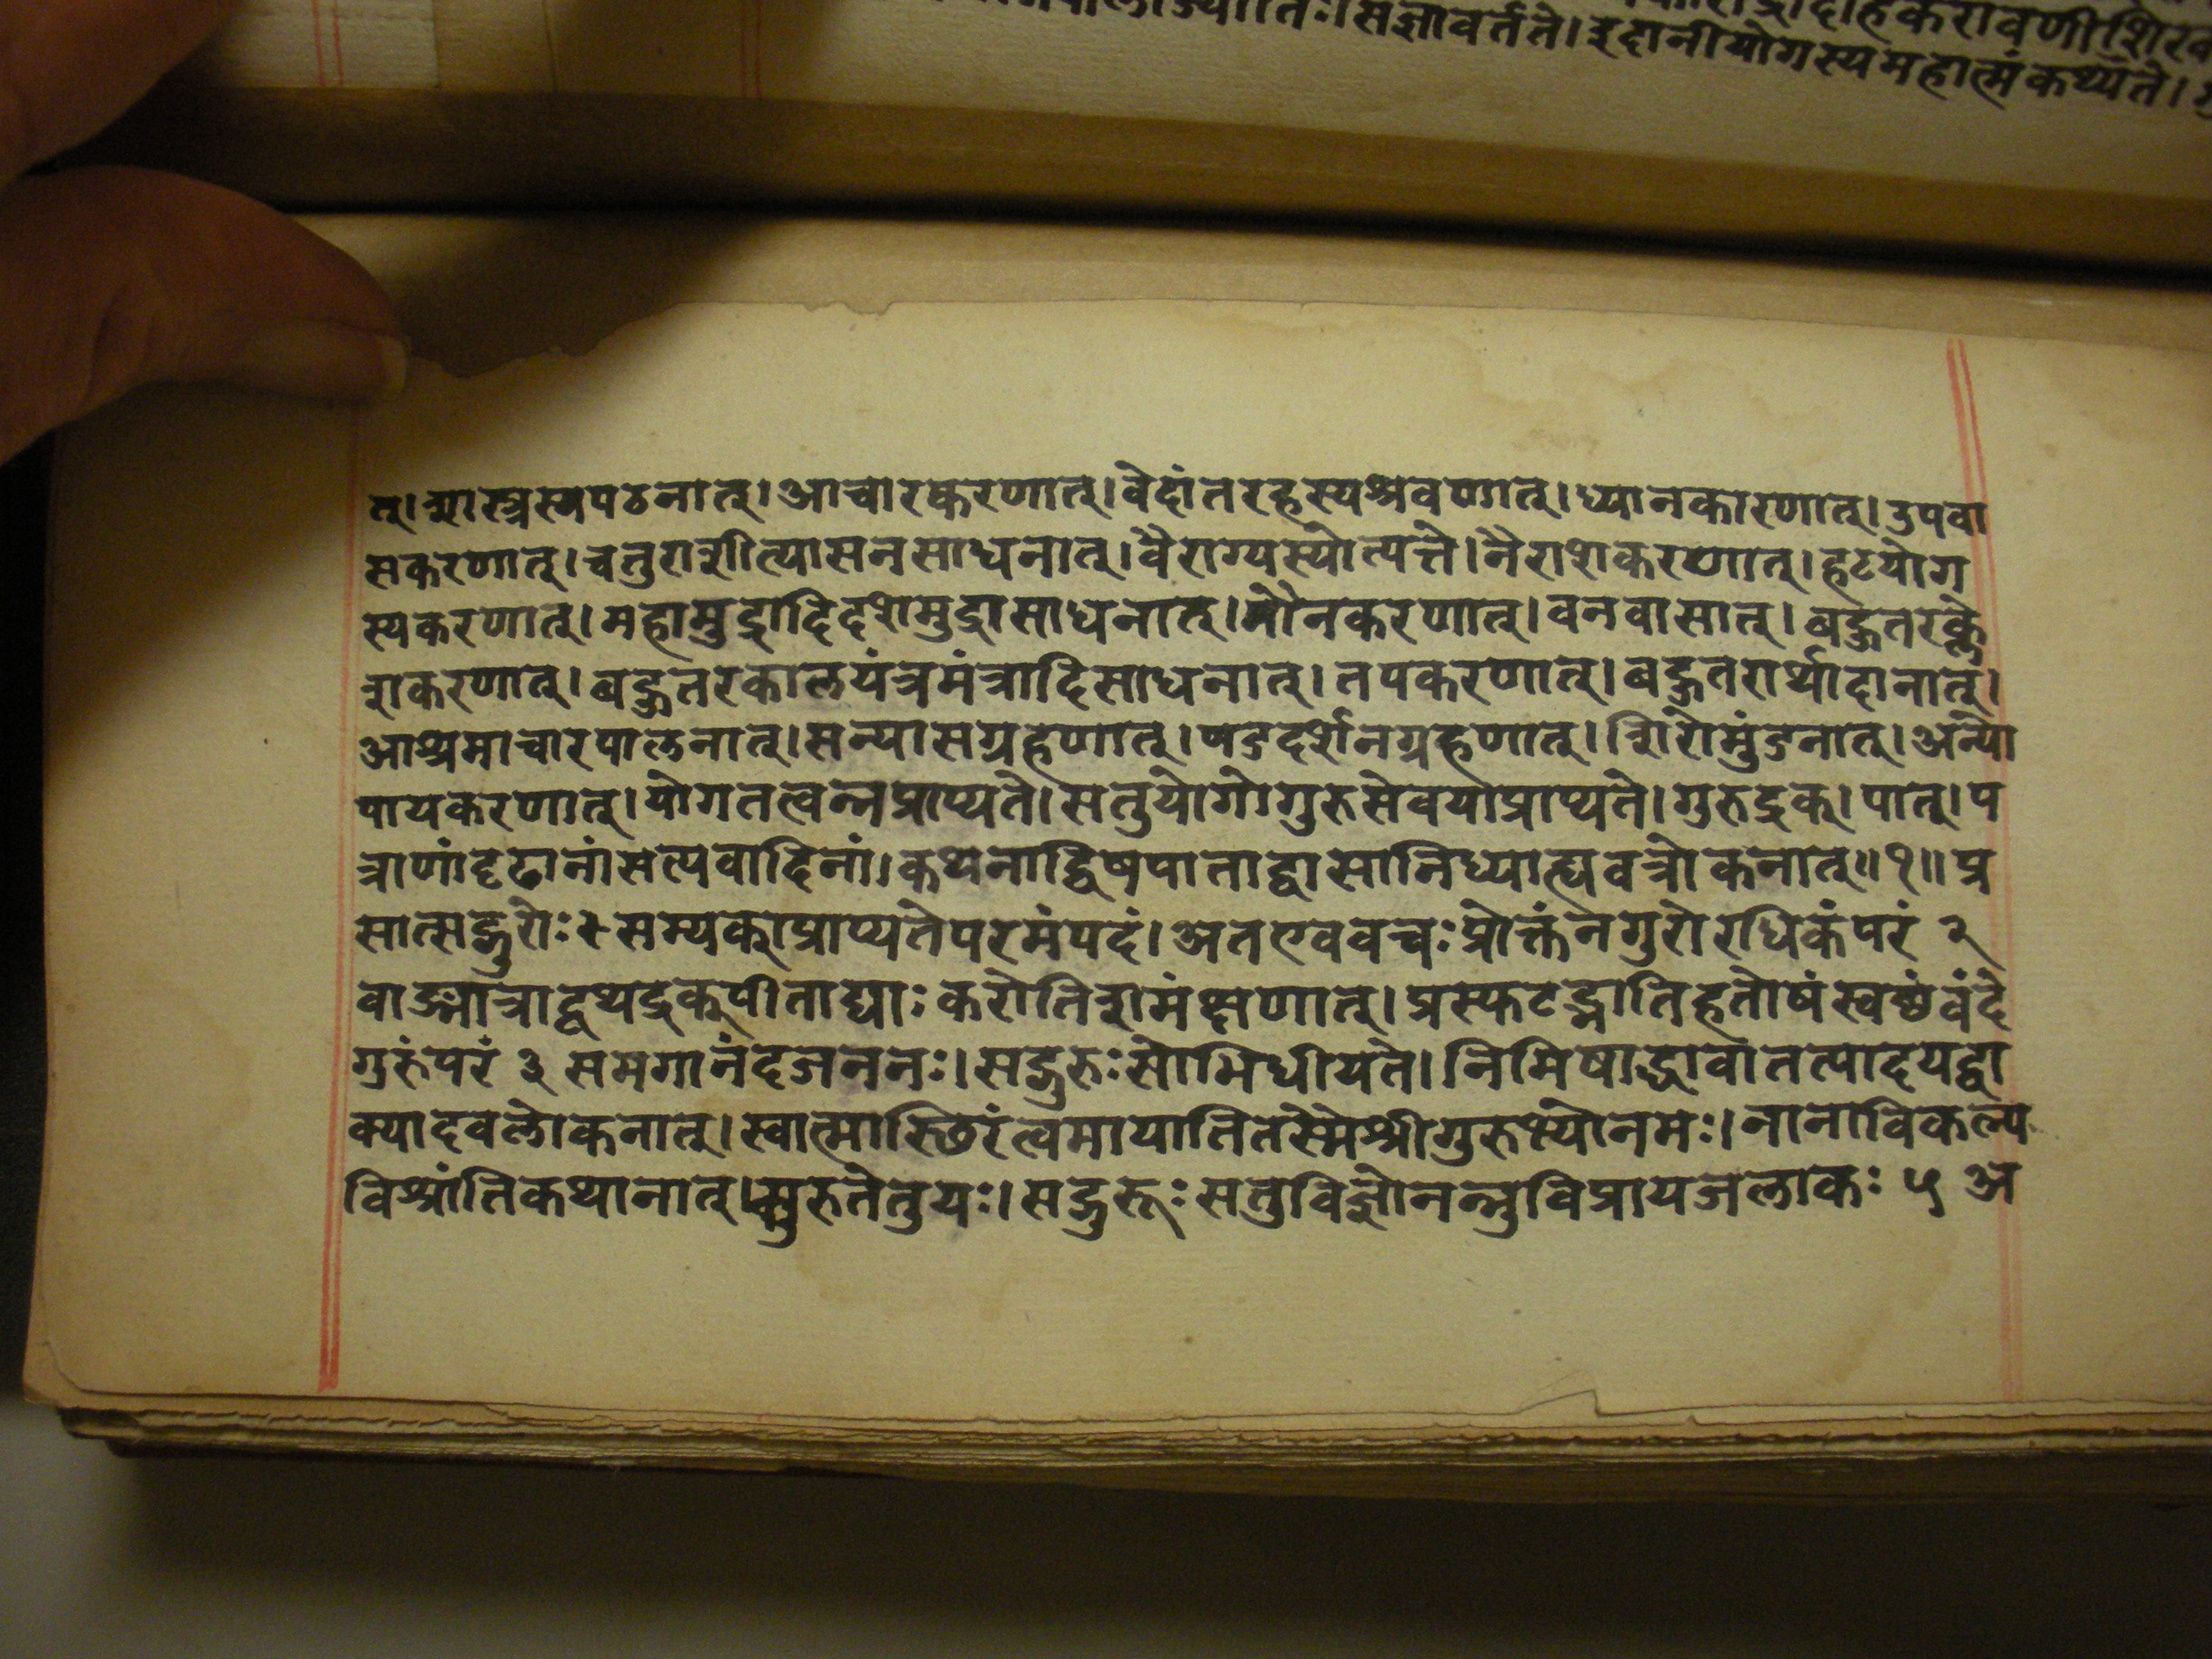 संज्ञावर्तते। इदानीयोगस्यमहात्मंकथ्यते।
त्। शास्त्रस्यपठनात्। आचारकरणात्। वेदांतरहस्यश्रवणात्। ध्यानकारणात्। उपवा
सकरणात्। चतुराशीत्यासनसाधनात्। वैराग्यस्योत्पत्ते। नैराशकरणात्। हटयोग
स्यकरणात्। महामुद्रादिदशमुद्रासाधनात्। मौनकरणात्। वनवासात्। बहुतरक्ले
शकरणात्। बहुतरकालयंत्रमंत्रादिसाधनात्। तपकरणात्। बहुतरार्थादानात्।
आश्रमाचारपालनात्। सन्यासग्रहणात्। षडदर्शनग्रहणात्। शिरोमुंडनात्। अन्यो
पायकरणात्। योगतत्वन्नप्राप्यते। सतुयोगोगुरुसेवयाप्राप्यते। गुरुदृक्। पात्। प
त्राणांदृढानांसत्यवादिनां। कथनाद्दिषपाताद्वासानिध्यात्द्यवत्रोकनात्॥१॥ प्र
सात्सद्गुरोः सम्यक्प्राप्यतेपरमंपदं। अतएववचः प्रोक्तंनगुरोरधिकंपरं २
वाङ्मात्राद्वथदृक्पीताद्याः करोतिशमंक्षणात्। प्रस्फटद्भ्रातिहतोषंस्वष्ठंवंदे
गुरुंपरं ३ समगानंदजननः। सद्गुरुः सोभिधीयते। निमिषाद्धावातत्पादयद्वा
क्यादवलोकनात्। स्वात्मास्छिरंत्वमायातितस्मेश्रीगुरुभ्योनमः। नानाविकल्प
विश्रांतिकथानात् कुरुतेतुयः। सद्गुरूः सतुविज्ञोनन्तुविप्रायजलाकः ५ अ